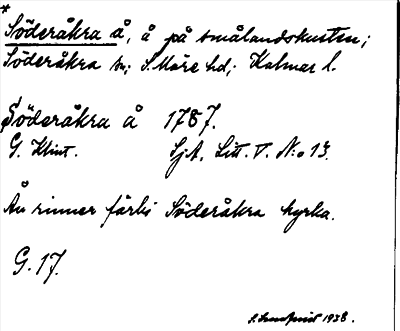 *
Söderåkra å, å på smålandskusten;
Söderåkra sn; S. Möre hd; Kalmar l.
Söderåkra å 1787.
G. Klint. SjA, Litt. V. N:o 13.
Ån rinner förbi Söderåkra kyrka.
G. 17.
1938.